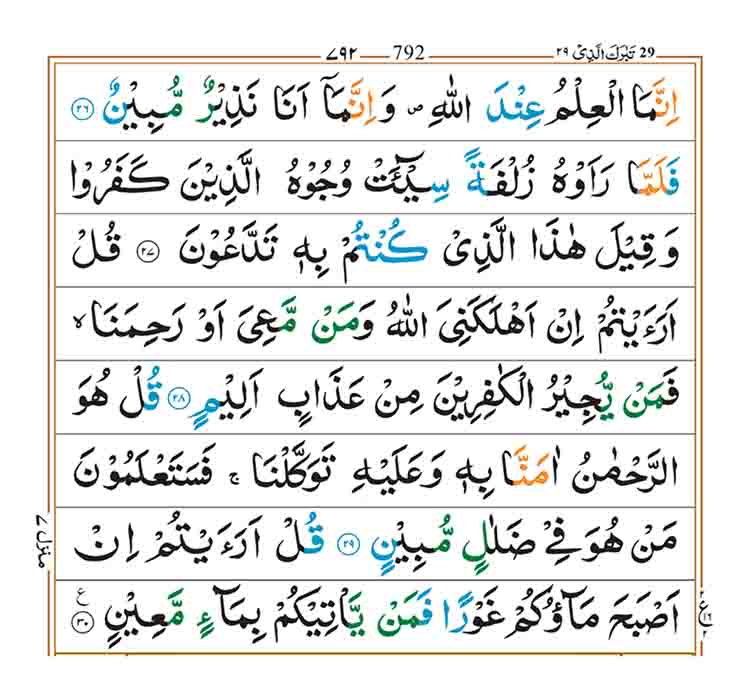 29 تَبٰرَكَ الَّذِىْ ٢٩ — 792 — ٧٩٢
اِنَّمَا الْعِلْمُ عِنْدَ اللّٰهِ ۪ وَاِنَّمَآ اَنَا نَذِيْرٌ مُّبِيْنٌ ۝٢٦
فَلَمَّا رَاَوْهُ زُلْفَةً سِيْٓـَٔتْ وُجُوْهُ الَّذِيْنَ كَفَرُوْا
وَقِيْلَ هٰذَا الَّذِىْ كُنْتُمْ بِهٖ تَدَّعُوْنَ ۝٢٧ قُلْ
اَرَءَيْتُمْ اِنْ اَهْلَكَنِىَ اللّٰهُ وَمَنْ مَّعِىَ اَوْ رَحِمَنَا ۙ
فَمَنْ يُّجِيْرُ الْكٰفِرِيْنَ مِنْ عَذَابٍ اَلِيْمٍ ۝٢٨ قُلْ هُوَ
الرَّحْمٰنُ اٰمَنَّا بِهٖ وَعَلَيْهِ تَوَكَّلْنَا ۚ فَسَتَعْلَمُوْنَ
مَنْ هُوَ فِىْ ضَلٰلٍ مُّبِيْنٍ ۝٢٩ قُلْ اَرَءَيْتُمْ اِنْ
اَصْبَحَ مَآؤُكُمْ غَوْرًا فَمَنْ يَّاْتِيْكُمْ بِمَآءٍ مَّعِيْنٍ ۝٣٠ ع
منزل ٧